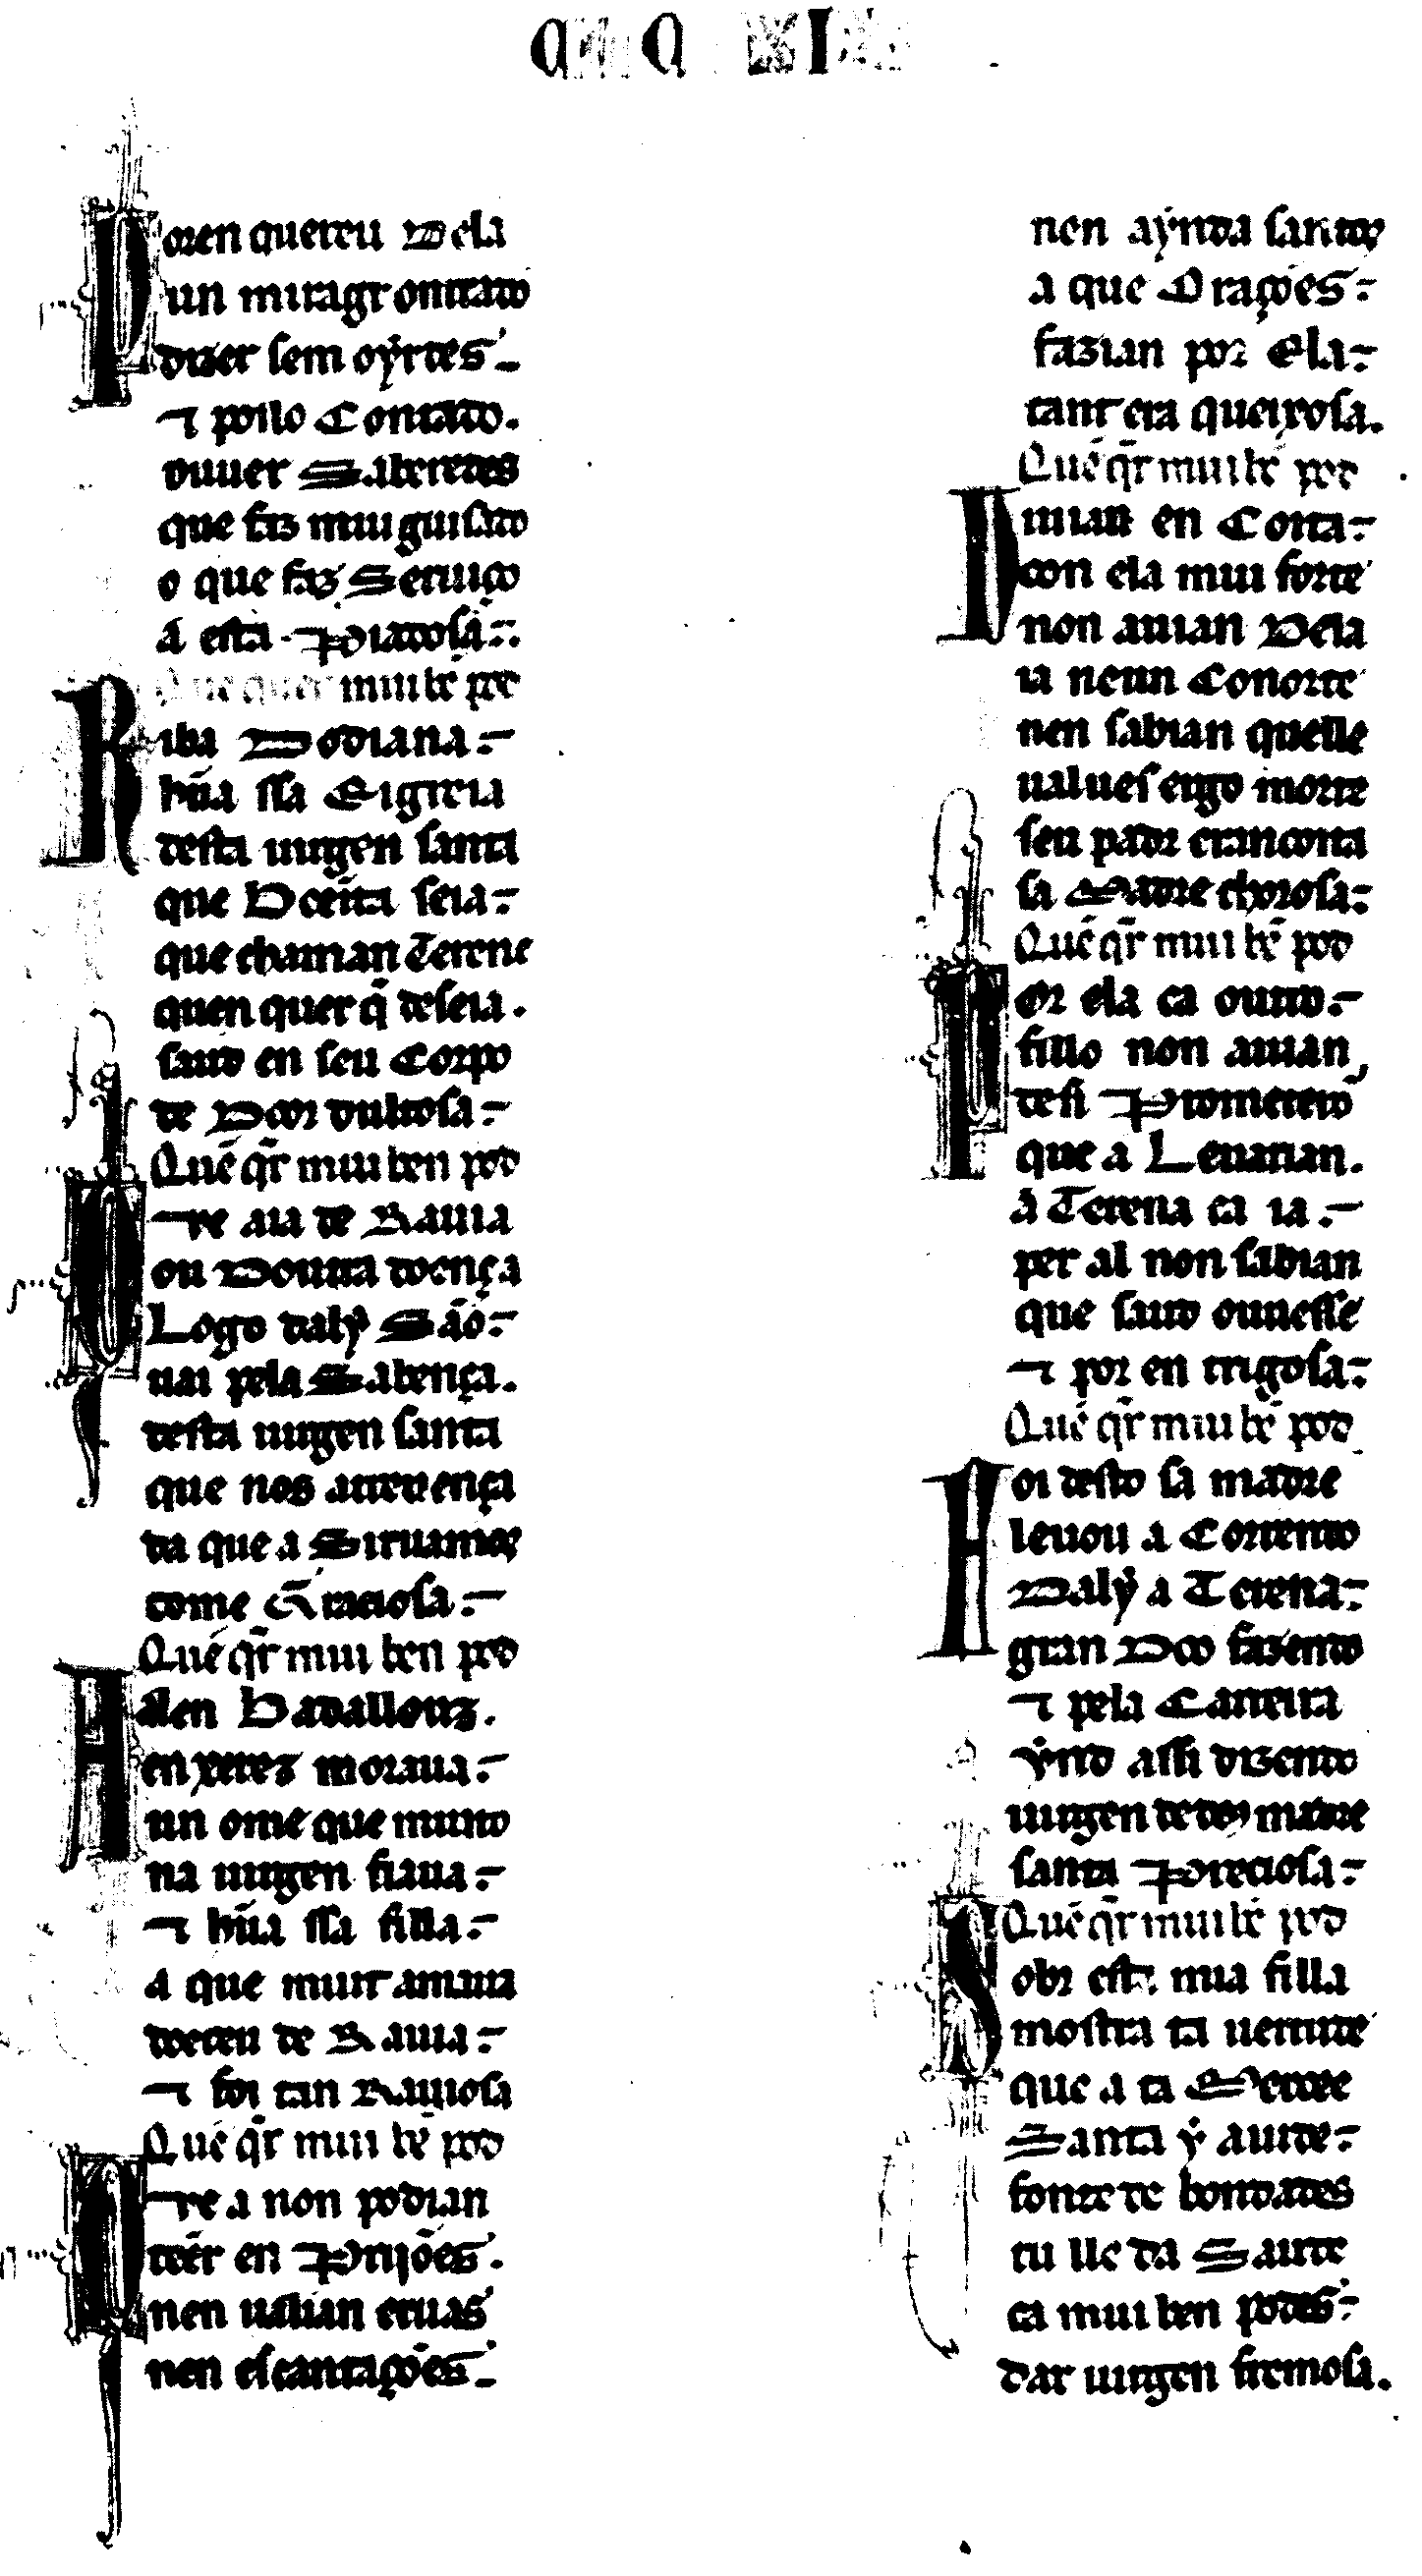 Poren quereu dela
un miragr ontrato
dizer sem oyrtes
⁊ poilo Contato.
ouuer Saberetes
que faz mui guisato
o que faz Seruiço
á esta Piatosa
Que quer mui bẽ pod
Riba Dodiana
hũa ssa Eigreia
desta uirgen santa
que Dcẽita seia
que chaman Terene
quen quer q̄ deseia.
saud en seu Corpo
de Door dultosa
Quẽ q̄r mui ben pod
Ore aia de Rauia
ou Doutra doença
Logo daly São
uai pela Sabença.
desta uirgen santa
que nos atreuença
da que a Siruamos
come Graciosa
Quẽ q̄r mui ben pod
Alen Badallouz.
en xerez moraua
un ome que muito
na uirgen fiaua
⁊ hũa ssa filla
a que muit amaua
doeceu de Rauia
⁊ foi tan Rauiosa
Quẽ q̄r mui bẽ pod
Que a non podian
tẽer en Prijões.
nen ualian eruas
nen escantações
nen aynda santos
a que Orações
fazian por Ela
tant era queixosa.
Quẽ q̄r mui bẽ pod
Uiuian en Coita
con ela mui forte
non auian Dela
ia neun Conorte
nen sabian quelle
ualues ergo morte
seu padr e rancoita
sa Madre chorosa
Quẽ q̄r mui bẽ pod
Por ela ca outro.
fillo non auian,
desi Prometero
que a Leuarian.
á Terena ca ia.
per al non sabian
que saud ouuesse
⁊ por en trigosa
Quẽ q̄r mui bẽ pod
Foi desto sa madre
leuou a Correndo
Daly a Terena
gran Doo fazendo
⁊ pela Carreira
ynd assi dizendo
uirgen de deus madre
santa Preciosa
Quẽ q̄r mui bẽ pod
Sobr esta mia filla
mostra ta uertude
que a ta Mercee
Santa y aiude
fonte de bondades
tu lle da Saude
ca mui ben podes
dar uirgen fremosa.